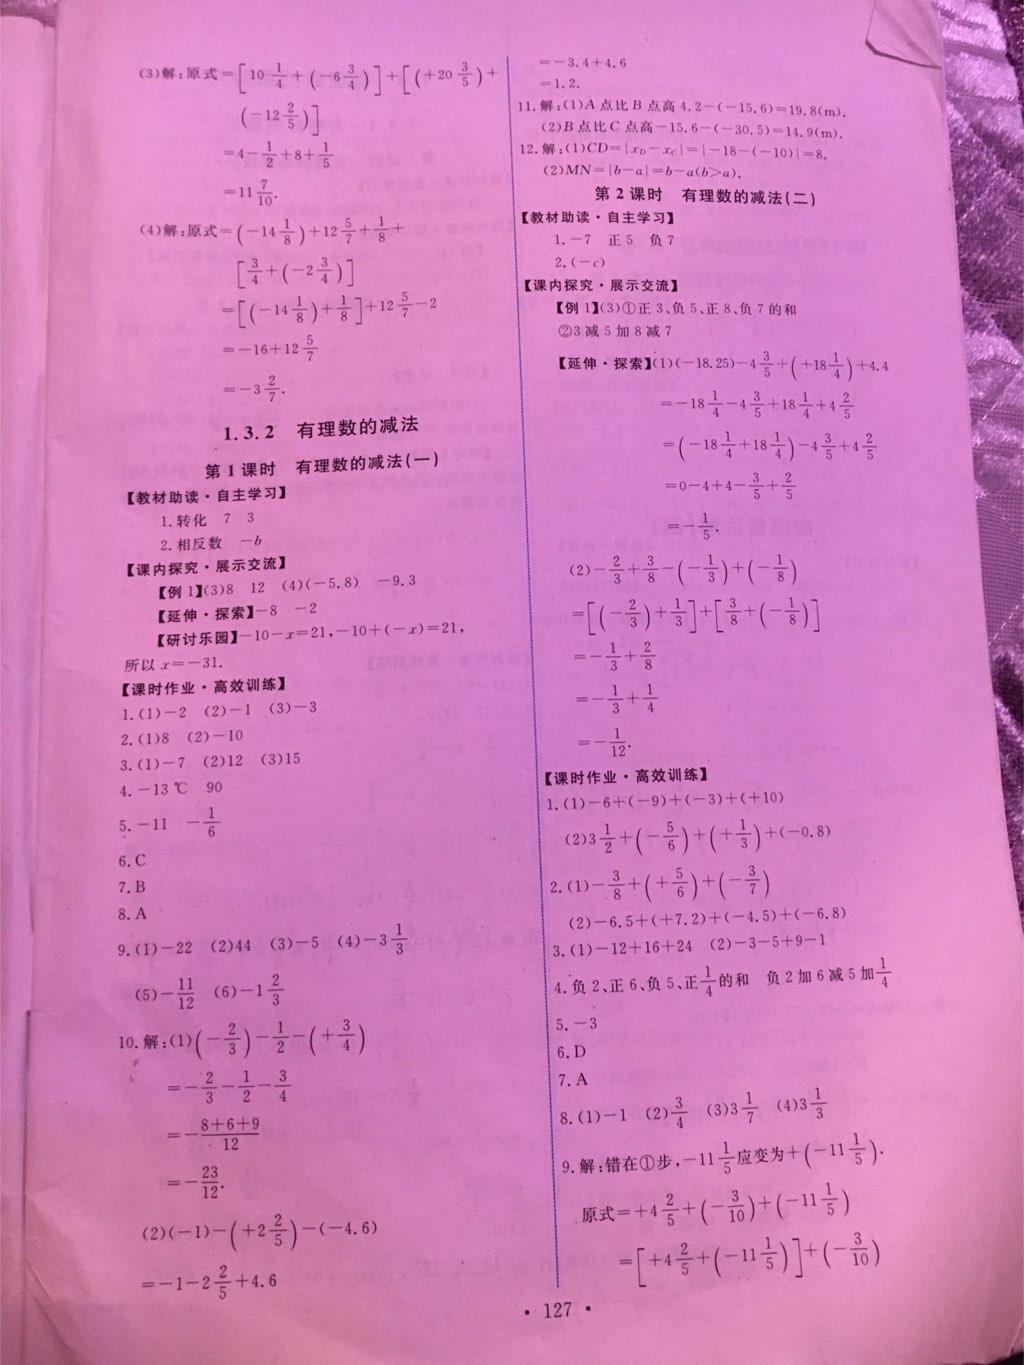 (3)解:原式=[10 1/4+(-6 3/4)]+[(+20 3/5)+
(-12 2/5)]
=4-1/2+8+1/5
=11 7/10.
(4)解:原式=(-14 1/8)+12 5/7+1/8+
[3/4+(-2 3/4)]
=[(-14 1/8)+1/8]+12 5/7-2
=-16+12 5/7
=-3 2/7.
1.3.2 有理数的减法
第1课时 有理数的减法(一)
【教材助读·自主学习】
1.转化 7 3
2.相反数 -b
【课内探究·展示交流】
【例1】(3)8 12 (4)(-5.8) -9.3
【延伸·探索】-8 -2
【研讨乐园】-10-x=21,-10+(-x)=21,
所以x=-31.
【课时作业·高效训练】
1.(1)-2 (2)-1 (3)-3
2.(1)8 (2)-10
3.(1)-7 (2)12 (3)15
4.-13℃ 90
5.-11 -1/6
6.C
7.B
8.A
9.(1)-22 (2)44 (3)-5 (4)-3 1/3
(5)-11/12 (6)-1 2/3
10.解:(1)(-2/3)-1/2-(+3/4)
=-2/3-1/2-3/4
=-(8+6+9)/12
=-23/12.
(2)(-1)-(+2 2/5)-(-4.6)
=-1-2 2/5+4.6
=-3.4+4.6
=1.2.
11.解:(1)A点比B点高4.2-(-15.6)=19.8(m).
(2)B点比C点高-15.6-(-30.5)=14.9(m).
12.解:(1)CD=|x_D-x_C|=|-18-(-10)|=8.
(2)MN=|b-a|=b-a(b>a).
第2课时 有理数的减法(二)
【教材助读·自主学习】
1.-7 正5 负7
2.(-c)
【课内探究·展示交流】
【例1】(3)①正3、负5、正8、负7的和
②3减5加8减7
【延伸·探索】(1)(-18.25)-4 3/5+(+18 1/4)+4.4
=-18 1/4-4 3/5+18 1/4+4 2/5
=(-18 1/4+18 1/4)-4 3/5+4 2/5
=0-4+4-3/5+2/5
=-1/5.
(2)-2/3+3/8-(-1/3)+(-1/8)
=[(-2/3)+1/3]+[3/8+(-1/8)]
=-1/3+2/8
=-1/3+1/4
=-1/12.
【课时作业·高效训练】
1.(1)-6+(-9)+(-3)+(+10)
(2)3 1/2+(-5/6)+(+1/3)+(-0.8)
2.(1)-3/8+(+5/6)+(-3/7)
(2)-6.5+(+7.2)+(-4.5)+(-6.8)
3.(1)-12+16+24 (2)-3-5+9-1
4.负2、正6、负5、正1/4的和 负2加6减5加1/4
5.-3
6.D
7.A
8.(1)-1 (2)3/4 (3)3 1/7 (4)3 1/3
9.解:错在①步,-11 1/5应变为+(-11 1/5).
原式=+4 2/5+(-3/10)+(-11 1/5)
=[+4 2/5+(-11 1/5)]+(-3/10)
·127·